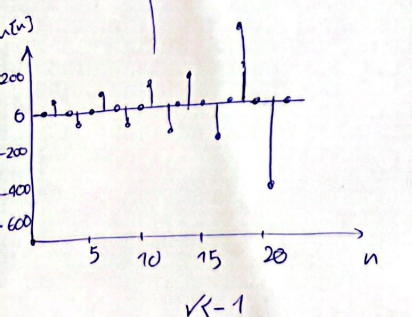 n[n]
200
0
-200
-400
-600
5 10 15 20 n
r<-1